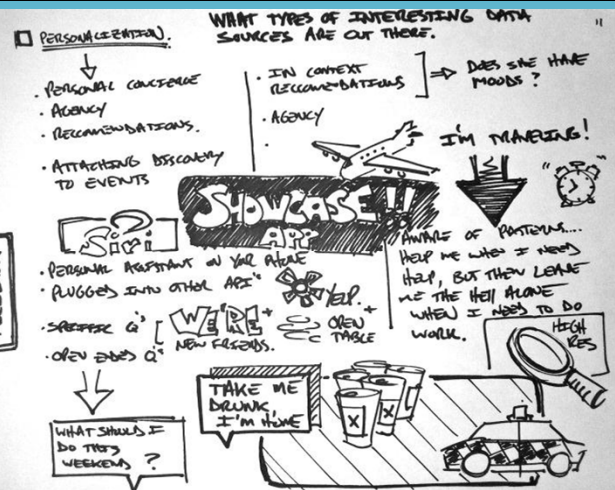 PERSONALIZATION.
WHAT TYPES OF INTERESTING DATA
SOURCES ARE OUT THERE.
"
• PERSONAL CONCIERGE
• AGENCY
• RECCOMENDATIONS.
• ATTACHING DISCOVERY
TO EVENTS
• IN CONTEXT
RECCOMENDATIONS
• AGENCY
•
⇒ DOES SHE HAVE
MOODS?
I'M TRAVELING!
SHOWCASE!!
APP
?
Siri
• PERSONAL ASSISTANT ON YOUR PHONE
• PLUGGED INTO OTHER API'S
• SPECIFIC Q'S
• OPEN ENDED Q'S
WE'RE
NEW FRIENDS.
+
YELP.
+
OPEN
TABLE
AWARE OF PATTERNS....
HELP ME WHEN I NEED
HELP, BUT THEN LEAVE
ME THE HELL ALONE
WHEN I NEED TO DO
WORK.
HIGH
RES
WHAT SHOULD I
DO THIS
WEEKEND ?
TAKE ME
DRUNK,
I'M HOME
X
X
X